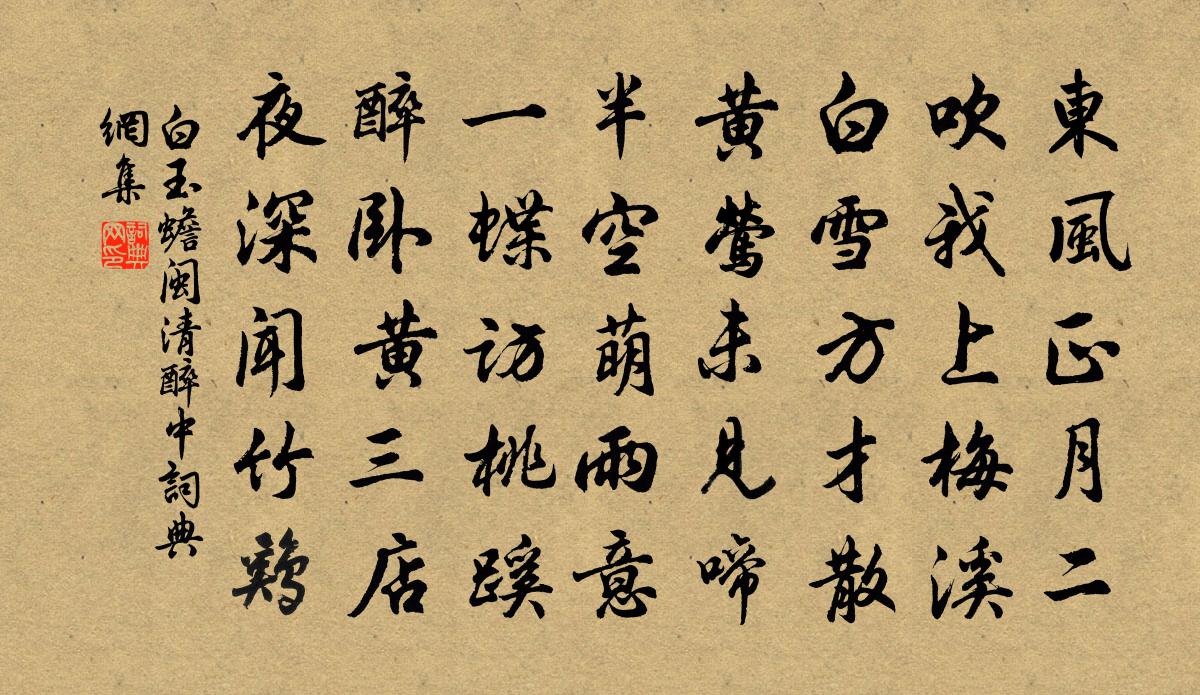 東風正月二
吹我上梅溪
白雪方才散
黃鶯未見啼
半空萌雨意
一蝶訪桃蹊
醉卧黃三店
夜深聞竹鷄
白玉蟾閩清醉中詞典
網集
詞典
网印